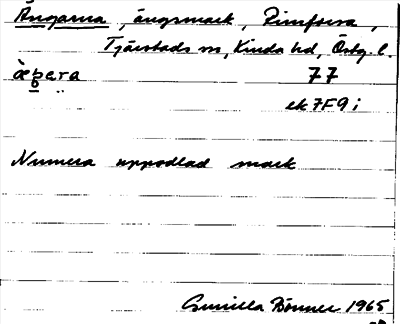 Ängarna, ängsmark, Rimforsa,
Tjärstads sn, Kinda hd, Östg. l.
77
ek 7F9i
Numera uppodlad mark
Gunilla Bonner 1965